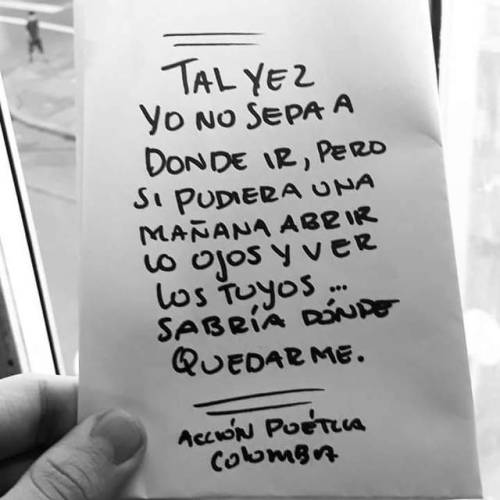 TAL VEZ
YO NO SEPA A
DONDE IR, PERO
SI PUDIERA UNA
MAÑANA ABRIR
LO OJOS Y VER
LOS TUYOS ...
SABRÍA DÓNDE
QUEDARME.
ACCIÓN POÉTICA
COLOMBIA